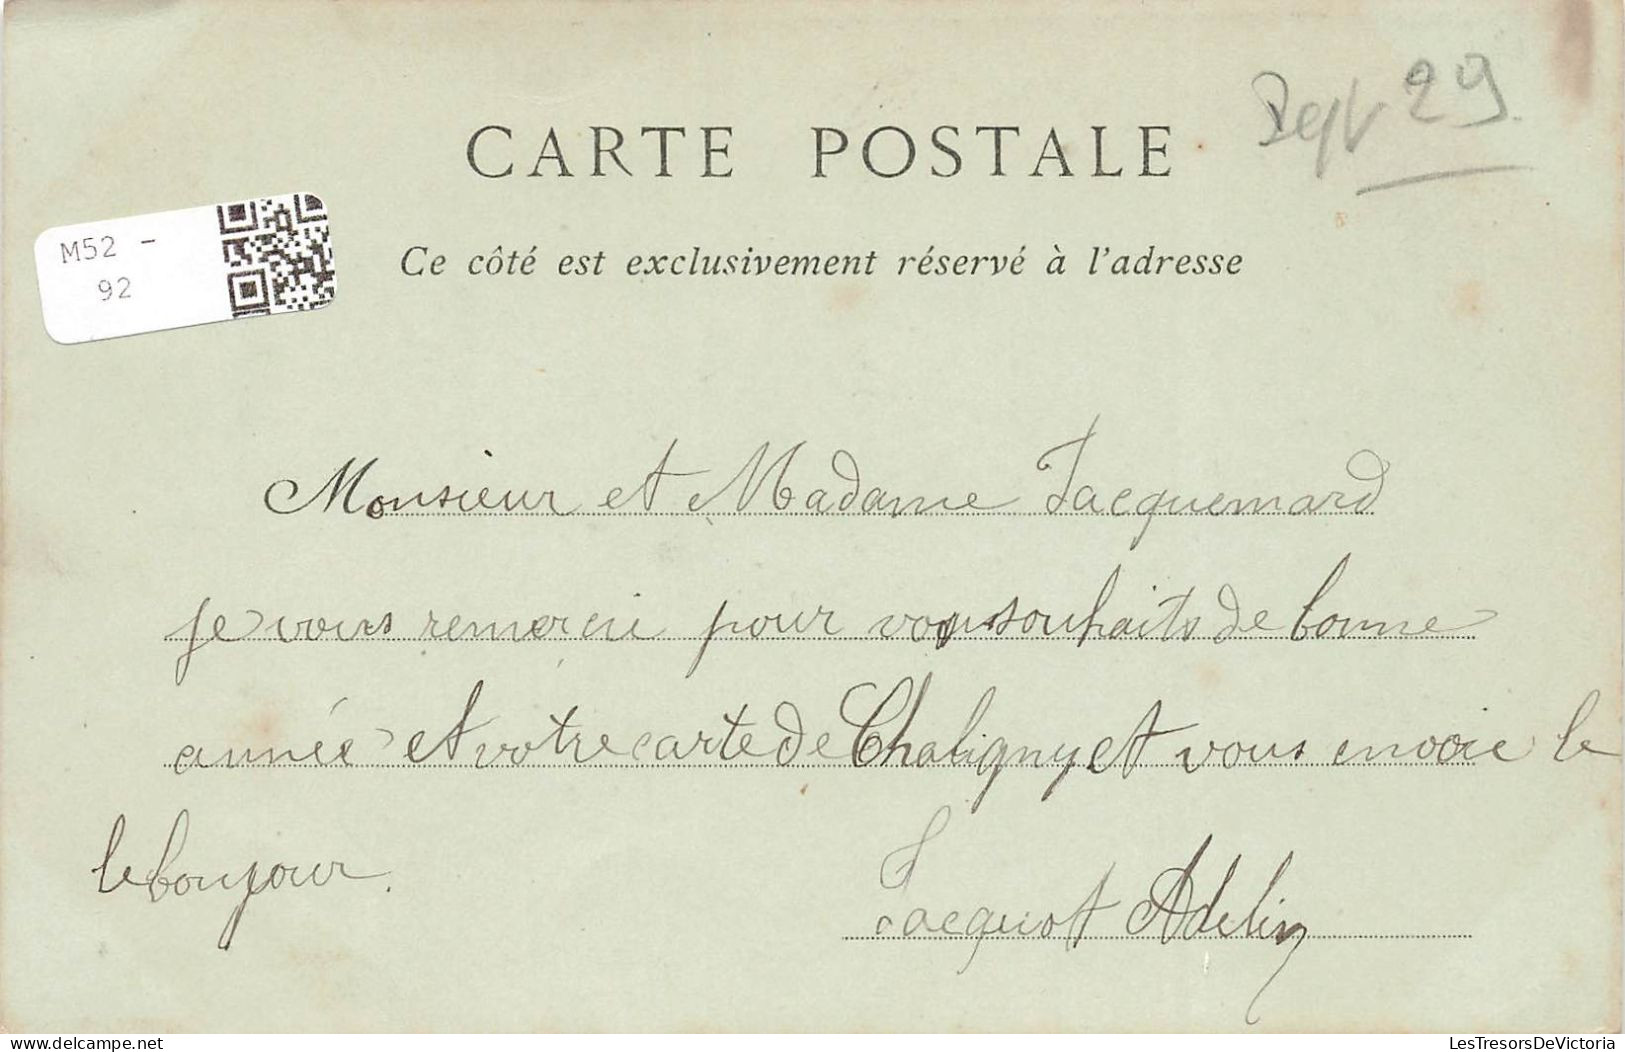 CARTE POSTALE
29
Ce côté est exclusivement réservé à l'adresse
M52 -
92
Monsieur et Madame Jacquemard
je vous remercie pour vos souhaits de bonne
année et votre carte de Chaligny et vous envoie le
le bonjour.
Jacquot Adelin
LesTresorsDeVictoria
delcampe.net